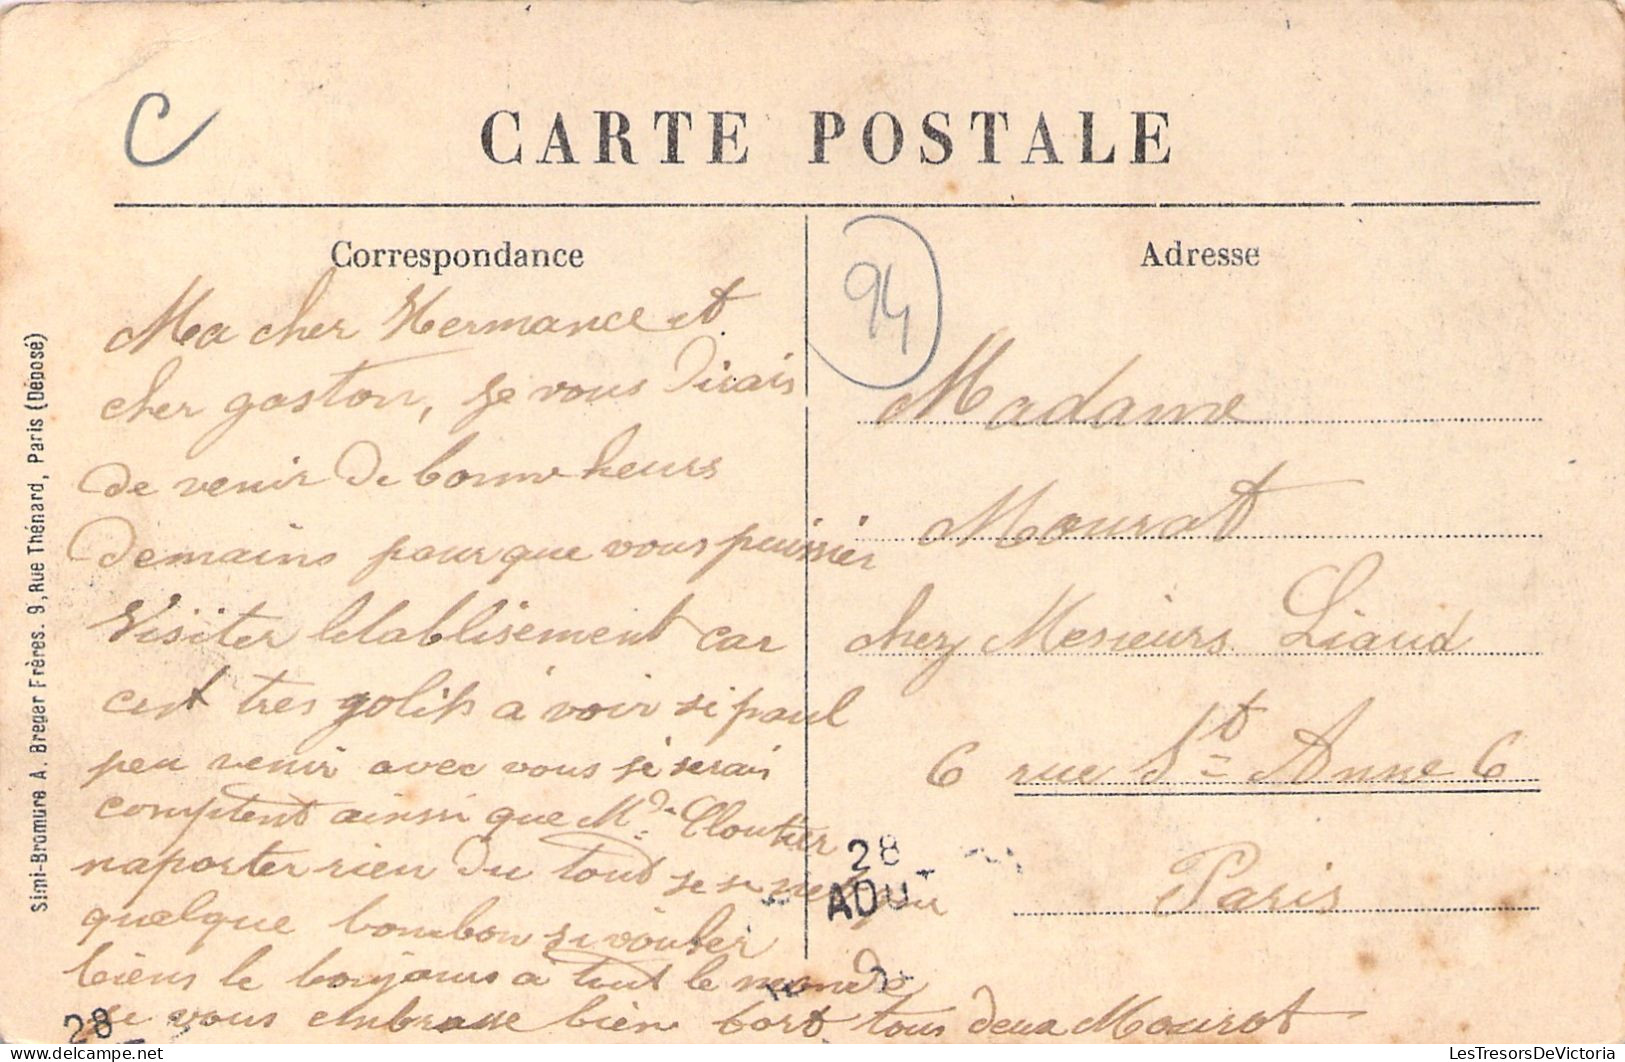 C
CARTE POSTALE
Correspondance
Adresse
94
Simi-Bromure A. Breger Frères. 9, Rue Thénard, Paris (Déposé)
Ma cher Hermance et
cher gaston, je vous dirais
de venir de bonne heurs
demains pourque vous puissier
Visiter letablisement car
cest tres golis a voir si paul
peu venir avec vous je serais
comptent ainsi que Md. Cloutier
naporter rien du tout se se
quelque bombon si vouler
biens le bonjours a tout le monde
je vous embrasse bien fort tous deux Mourat
Madame
Mourat
chez Mesieurs Liaud
6 rue St Anne 6
Paris
28
AOU
28
LesTresorsDeVictoria
lestresorsdevictoria.delcampe.net